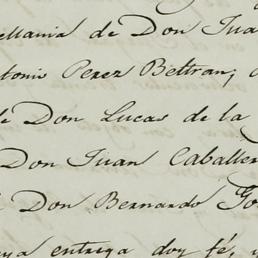 ellania de Don Jua
ntonio Perez Beltran,
de Don Lucas de la
Don Juan Caballer
Don Bernardo Go
entrega doy fé,